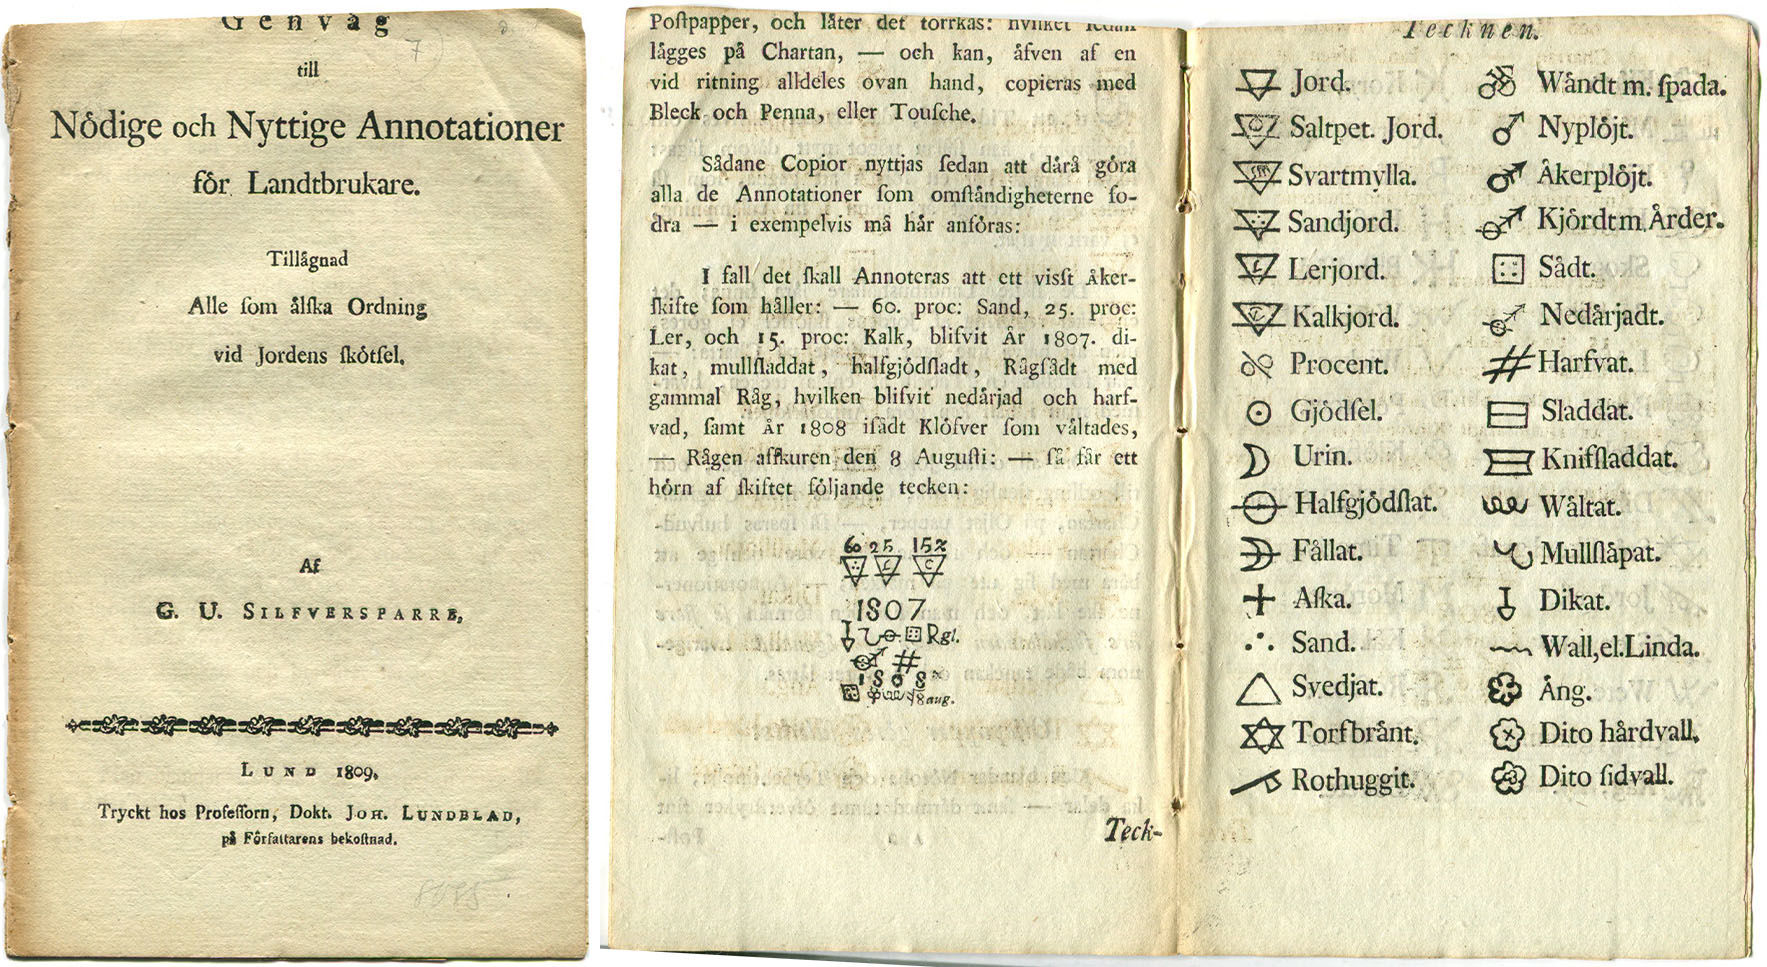 Genväg
till
Nödige och Nyttige Annotationer
för Landtbrukare.
Tillågnad
Alle ſom ålſka Ordning
vid Jordens ſkötſel.
Af
G. U. SILFVERSPARRE,
LUND 1809.
Tryckt hos Profeſſorn, Dokt. JOH. LUNDBLAD,
på Författarens bekoſtnad.
Poſtpapper, och låter det torrkas: hvilket ſedan
lågges på Chartan, — och kan, åfven af en
vid ritning alldeles ovan hand, copieras med
Bleck och Penna, eller Touſche.
Sådane Copior nyttjas ſedan att dårå göra
alla de Annotationer ſom omſtåndigheterne fo-
dra — i exempelvis må hår anföras:
I fall det ſkall Annoteras att ett viſst Åker-
ſkifte ſom håller: — 60. proc: Sand, 25. proc:
Ler, och 15. proc: Kalk, blifvit År 1807. di-
kat, mullſladdat, halfgjödſladt, Rågſådt med
gammal Råg, hvilken blifvit nedårjad och harf-
vad, ſamt År 1808 iſådt Klöfver ſom våltades,
— Rågen afſkuren den 8 Auguſti: — få får ett
hörn af ſkiftet följande tecken:
60 25 15%
1807
Rgl.
1808
8 aug.
Teck-
Tecknen.
Jord.
Saltpet. Jord.
Svartmylla.
Sandjord.
Lerjord.
Kalkjord.
Procent.
Gjödſel.
Urin.
Halfgjödſlat.
Fållat.
Aſka.
Sand.
Svedjat.
Torfbrånt.
Rothuggit.
Wåndt m. ſpada.
Nyplöjt.
Åkerplöjt.
Kjördt m. Årder.
Sådt.
Nedårjadt.
Harfvat.
Sladdat.
Knifſladdat.
Wåltat.
Mullſlåpat.
Dikat.
Wall, el. Linda.
Ång.
Dito hårdvall.
Dito ſidvall.